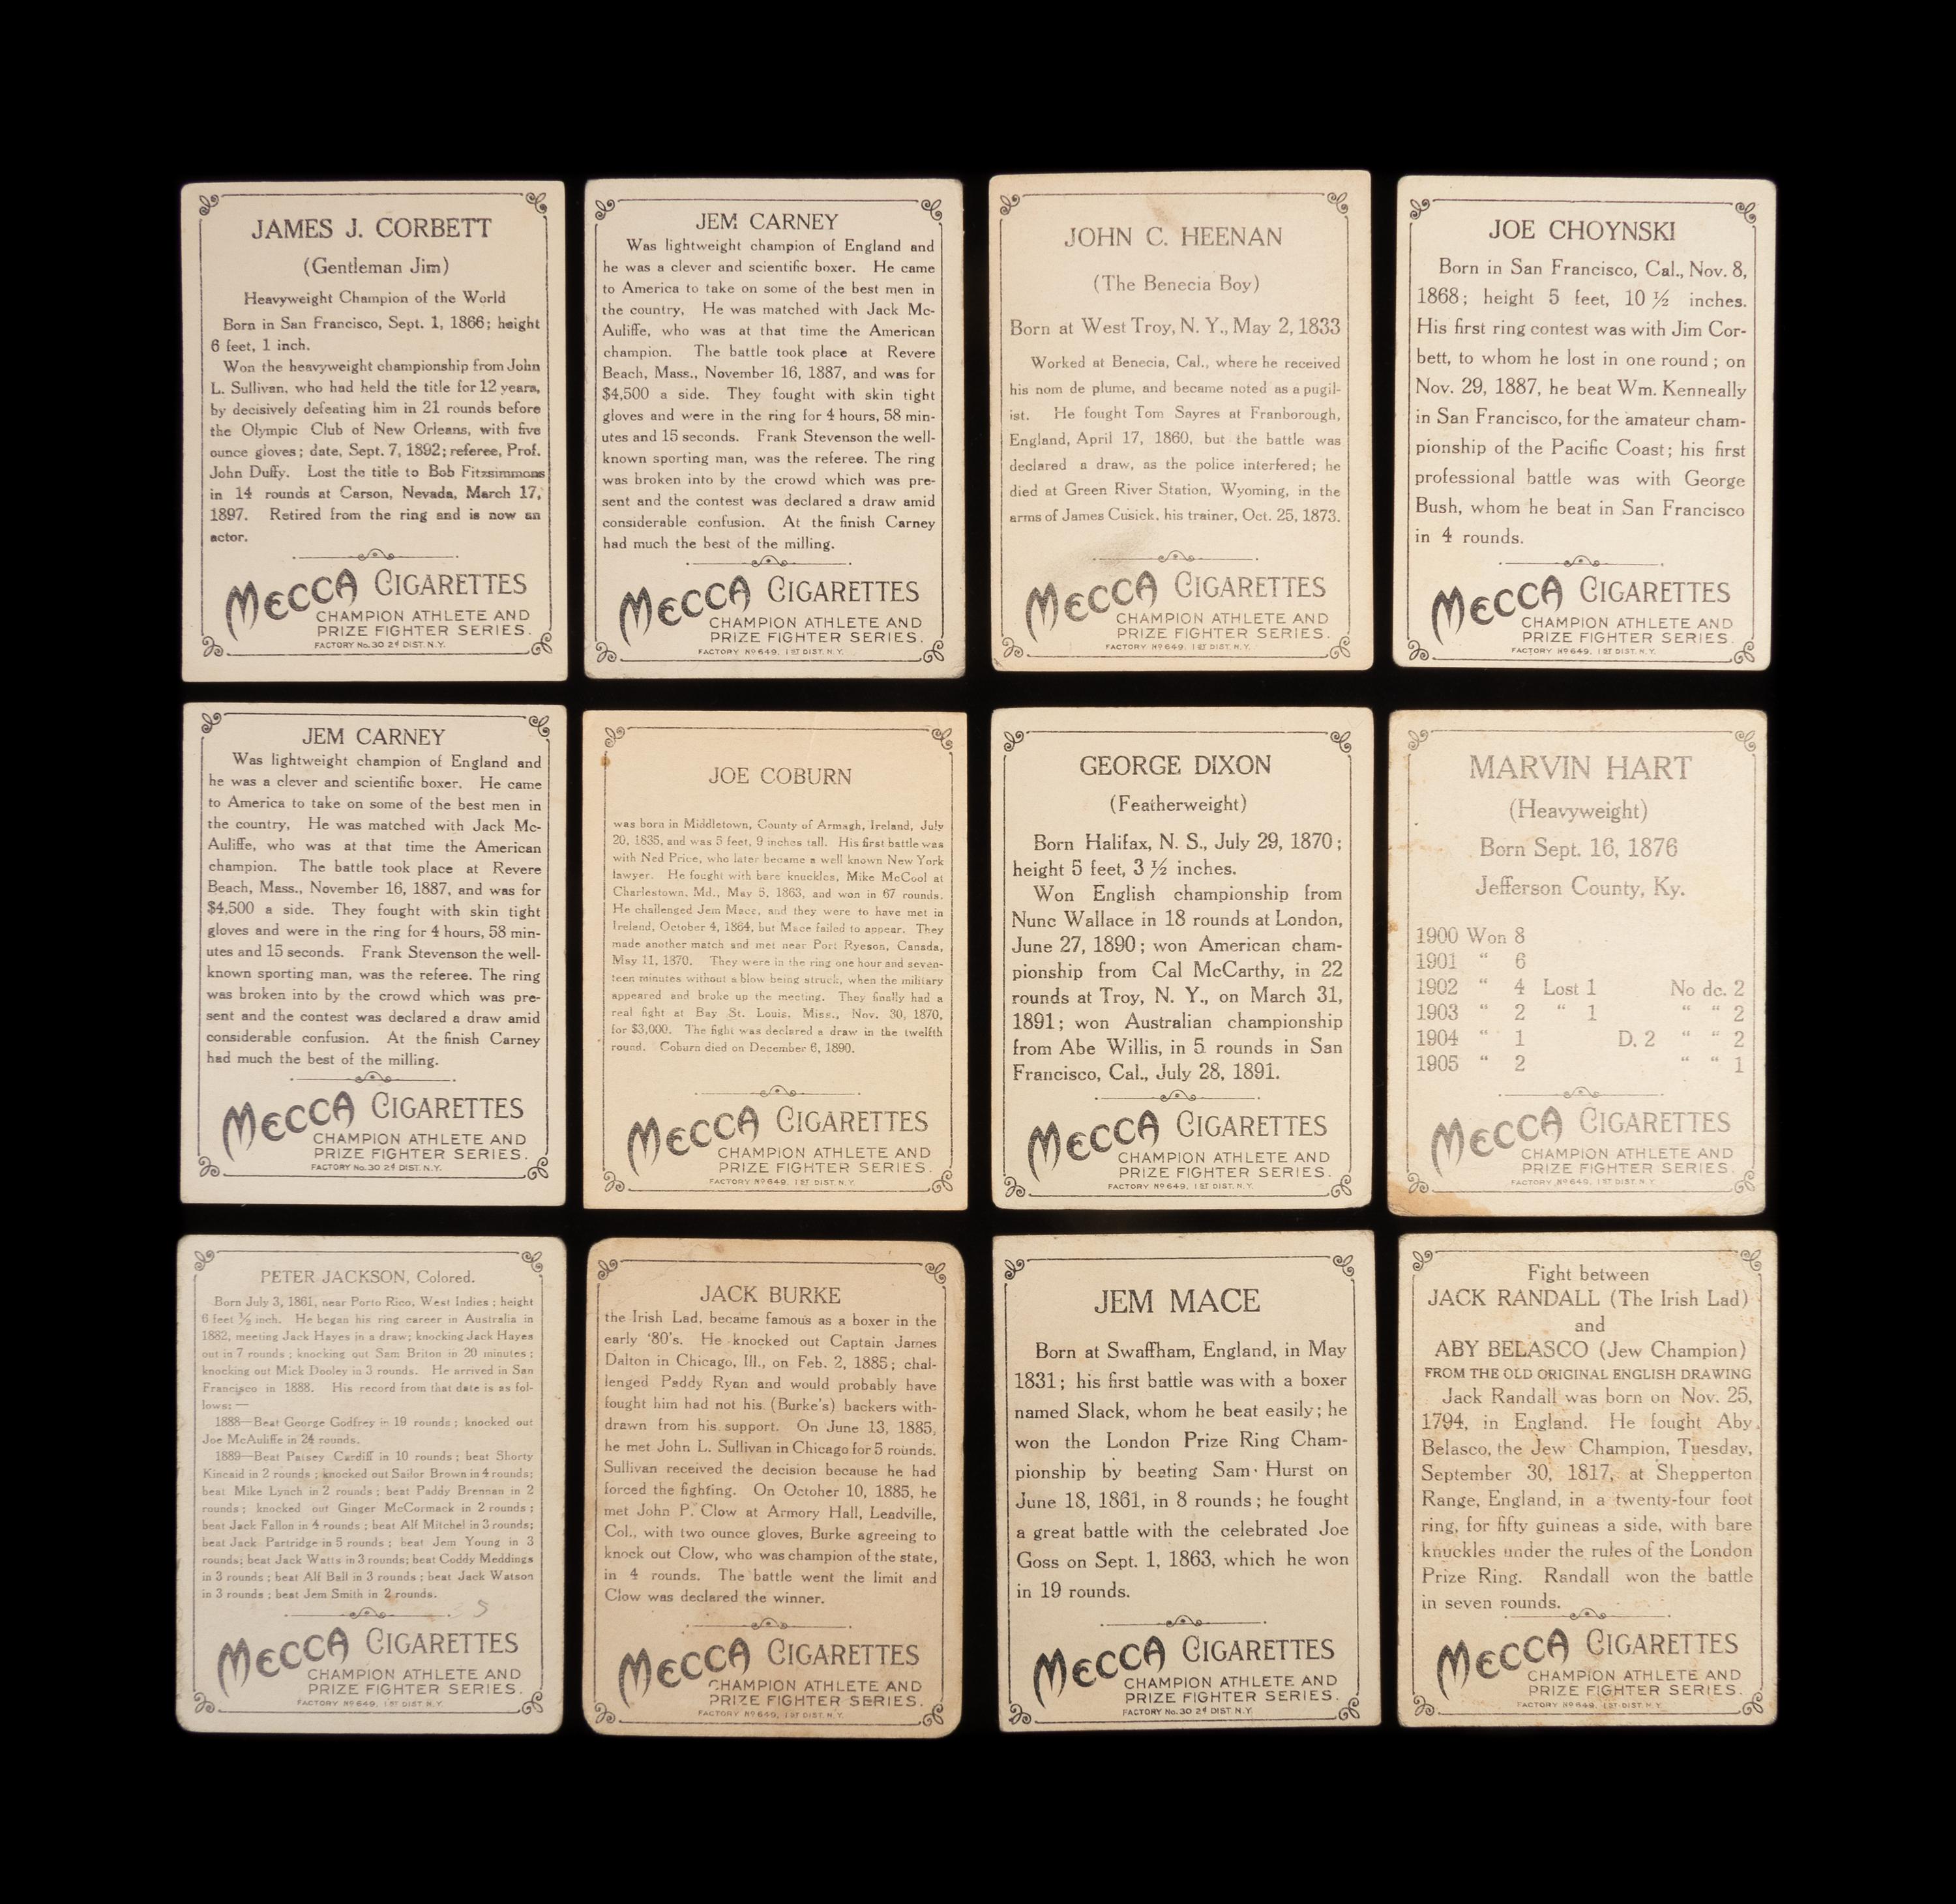 JAMES J. CORBETT
(Gentleman Jim)
Heavyweight Champion of the World
Born in San Francisco, Sept. 1, 1866; height
6 feet, 1 inch.
Won the heavyweight championship from John
L. Sullivan, who had held the title for 12 years,
by decisively defeating him in 21 rounds before
the Olympic Club of New Orleans, with five
ounce gloves; date, Sept. 7, 1892; referee, Prof.
John Duffy. Lost the title to Bob Fitzsimmons
in 14 rounds at Carson, Nevada, March 17,
1897. Retired from the ring and is now an
actor.
MECCA CIGARETTES
CHAMPION ATHLETE AND
PRIZE FIGHTER SERIES.
FACTORY No. 30 2d DIST. N.Y.
JEM CARNEY
Was lightweight champion of England and
he was a clever and scientific boxer. He came
to America to take on some of the best men in
the country, He was matched with Jack Mc-
Auliffe, who was at that time the American
champion. The battle took place at Revere
Beach, Mass., November 16, 1887, and was for
$4,500 a side. They fought with skin tight
gloves and were in the ring for 4 hours, 58 min-
utes and 15 seconds. Frank Stevenson the well-
known sporting man, was the referee. The ring
was broken into by the crowd which was pre-
sent and the contest was declared a draw amid
considerable confusion. At the finish Carney
had much the best of the milling.
MECCA CIGARETTES
CHAMPION ATHLETE AND
PRIZE FIGHTER SERIES.
FACTORY No 649, 1ST DIST. N.Y.
JOHN C. HEENAN
(The Benecia Boy)
Born at West Troy, N. Y., May 2, 1833
Worked at Benecia, Cal., where he received
his nom de plume, and became noted as a pugil-
ist. He fought Tom Sayres at Franborough,
England, April 17, 1860, but the battle was
declared a draw, as the police interfered; he
died at Green River Station, Wyoming, in the
arms of James Cusick, his trainer, Oct. 25, 1873.
MECCA CIGARETTES
CHAMPION ATHLETE AND
PRIZE FIGHTER SERIES.
FACTORY No 649, 1ST DIST. N.Y.
JOE CHOYNSKI
Born in San Francisco, Cal., Nov. 8,
1868; height 5 feet, 10 ½ inches.
His first ring contest was with Jim Cor-
bett, to whom he lost in one round; on
Nov. 29, 1887, he beat Wm. Kenneally
in San Francisco, for the amateur cham-
pionship of the Pacific Coast; his first
professional battle was with George
Bush, whom he beat in San Francisco
in 4 rounds.
MECCA CIGARETTES
CHAMPION ATHLETE AND
PRIZE FIGHTER SERIES.
FACTORY No 649, 1ST DIST. N.Y.
JEM CARNEY
Was lightweight champion of England and
he was a clever and scientific boxer. He came
to America to take on some of the best men in
the country, He was matched with Jack Mc-
Auliffe, who was at that time the American
champion. The battle took place at Revere
Beach, Mass., November 16, 1887, and was for
$4,500 a side. They fought with skin tight
gloves and were in the ring for 4 hours, 58 min-
utes and 15 seconds. Frank Stevenson the well-
known sporting man, was the referee. The ring
was broken into by the crowd which was pre-
sent and the contest was declared a draw amid
considerable confusion. At the finish Carney
had much the best of the milling.
MECCA CIGARETTES
CHAMPION ATHLETE AND
PRIZE FIGHTER SERIES.
FACTORY No. 30 2d DIST. N.Y.
JOE COBURN
was born in Middletown, County of Armagh, Ireland, July
20, 1835, and was 5 feet, 9 inches tall. His first battle was
with Ned Price, who later became a well known New York
lawyer. He fought with bare knuckles, Mike McCool at
Charlestown, Md., May 5, 1863, and won in 67 rounds.
He challenged Jem Mace, and they were to have met in
Ireland, October 4, 1864, but Mace failed to appear. They
made another match and met near Port Ryeson, Canada,
May 11, 1870. They were in the ring one hour and seven-
teen minutes without a blow being struck, when the military
appeared and broke up the meeting. They finally had a
real fight at Bay St. Louis, Miss., Nov. 30, 1870,
for $3,000. The fight was declared a draw in the twelfth
round. Coburn died on December 6, 1890.
MECCA CIGARETTES
CHAMPION ATHLETE AND
PRIZE FIGHTER SERIES.
FACTORY No 649, 1ST DIST. N.Y.
GEORGE DIXON
(Featherweight)
Born Halifax, N. S., July 29, 1870;
height 5 feet, 3 ½ inches.
Won English championship from
Nunc Wallace in 18 rounds at London,
June 27, 1890; won American cham-
pionship from Cal McCarthy, in 22
rounds at Troy, N. Y., on March 31,
1891; won Australian championship
from Abe Willis, in 5 rounds in San
Francisco, Cal., July 28, 1891.
MECCA CIGARETTES
CHAMPION ATHLETE AND
PRIZE FIGHTER SERIES.
FACTORY No 649, 1ST DIST. N.Y.
MARVIN HART
(Heavyweight)
Born Sept. 16, 1876
Jefferson County, Ky.
1900 Won 8
1901 " 6
1902 " 4 Lost 1 No dc. 2
1903 " 2 " 1 " " 2
1904 " 1 D. 2 " " 2
1905 " 2 " " 1
MECCA CIGARETTES
CHAMPION ATHLETE AND
PRIZE FIGHTER SERIES.
FACTORY No 649, 1ST DIST. N.Y.
PETER JACKSON, Colored.
Born July 3, 1861, near Porto Rico, West Indies; height
6 feet ½ inch. He began his ring career in Australia in
1882, meeting Jack Hayes in a draw; knocking Jack Hayes
out in 7 rounds; knocking out Sam Briton in 20 minutes;
knocking out Mick Dooley in 3 rounds. He arrived in San
Francisco in 1888. His record from that date is as fol-
lows:—
1888—Beat George Godfrey in 19 rounds; knocked out
Joe McAuliffe in 24 rounds.
1889—Beat Patsey Cardiff in 10 rounds; beat Shorty
Kincaid in 2 rounds; knocked out Sailor Brown in 4 rounds;
beat Mike Lynch in 2 rounds; beat Paddy Brennan in 2
rounds; knocked out Ginger McCormack in 2 rounds;
beat Jack Fallon in 4 rounds; beat Alf Mitchel in 3 rounds;
beat Jack Partridge in 5 rounds; beat Jem Young in 3
rounds; beat Jack Watts in 3 rounds; beat Coddy Meddings
in 3 rounds; beat Alf Ball in 3 rounds; beat Jack Watson
in 3 rounds; beat Jem Smith in 2 rounds.
5
MECCA CIGARETTES
CHAMPION ATHLETE AND
PRIZE FIGHTER SERIES.
FACTORY No 649, 1ST DIST. N.Y.
JACK BURKE
the Irish Lad, became famous as a boxer in the
early '80's. He knocked out Captain James
Dalton in Chicago, Ill., on Feb. 2, 1885; chal-
lenged Paddy Ryan and would probably have
fought him had not his (Burke's) backers with-
drawn from his support. On June 13, 1885,
he met John L. Sullivan in Chicago for 5 rounds.
Sullivan received the decision because he had
forced the fighting. On October 10, 1885, he
met John P. Clow at Armory Hall, Leadville,
Col., with two ounce gloves, Burke agreeing to
knock out Clow, who was champion of the state,
in 4 rounds. The battle went the limit and
Clow was declared the winner.
MECCA CIGARETTES
CHAMPION ATHLETE AND
PRIZE FIGHTER SERIES.
FACTORY No 649, 1ST DIST. N.Y.
JEM MACE
Born at Swaffham, England, in May
1831; his first battle was with a boxer
named Slack, whom he beat easily; he
won the London Prize Ring Cham-
pionship by beating Sam Hurst on
June 18, 1861, in 8 rounds; he fought
a great battle with the celebrated Joe
Goss on Sept. 1, 1863, which he won
in 19 rounds.
MECCA CIGARETTES
CHAMPION ATHLETE AND
PRIZE FIGHTER SERIES.
FACTORY No. 30 2d DIST. N.Y.
Fight between
JACK RANDALL (The Irish Lad)
and
ABY BELASCO (Jew Champion)
FROM THE OLD ORIGINAL ENGLISH DRAWING
Jack Randall was born on Nov. 25,
1794, in England. He fought Aby
Belasco, the Jew Champion, Tuesday,
September 30, 1817, at Shepperton
Range, England, in a twenty-four foot
ring, for fifty guineas a side, with bare
knuckles under the rules of the London
Prize Ring. Randall won the battle
in seven rounds.
MECCA CIGARETTES
CHAMPION ATHLETE AND
PRIZE FIGHTER SERIES.
FACTORY No 649, 1ST DIST. N.Y.